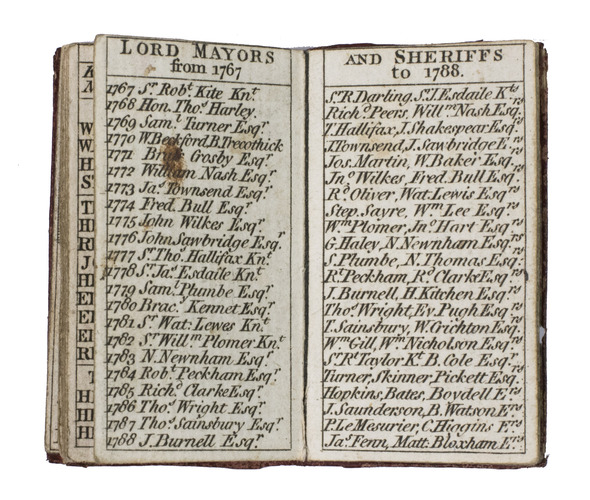 LORD MAYORS
from 1767
1767 Sr. Robt. Kite Knt.
1768 Hon. Thos. Harley
1769 Saml. Turner Esqr.
1770 W. Beckford, B. Trecothick
1771 Crosby Esqr.
1772 William Nash Esqr.
1773 Jas. Townsend Esqr.
1774 Fred. Bull Esqr.
1775 John Wilkes Esqr.
1776 John Sawbridge Esqr.
1777 Sr. Tho. Hallifax Knt.
1778 Sr. Jas. Esdaile Knt.
1779 Saml. Plumbe Esqr.
1780 Brac. Kennet Esqr.
1781 Sr. Wat: Lewes Knt.
1782 Sr. Willm. Plomer Knt.
1783 N. Newnham Esqr.
1784 Robt. Peckham Esqr.
1785 Richd. Clarke Esqr.
1786 Thos. Wright Esqr.
1787 Thos. Sainsbury Esqr.
1788 J. Burnell Esqr.
AND SHERIFFS
to 1788.
Sr. R. Darling, Sr. J. Esdaile Kts.
Richd. Peers, Willm. Nash Esqrs.
T. Hallifax, J. Shakespear Esqrs.
J. Townsend, J. Sawbridge Ers.
Jos. Martin, W. Baker Esqrs.
Jno. Wilkes, Fred. Bull Esqrs.
Rd. Oliver, Wat. Lewis Esqrs.
Step. Sayre, Wm. Lee Esqrs.
Wm. Plomer, Jno. Hart Esqrs.
G. Haley, N. Newnham Esqrs.
S. Plumbe, N. Thomas Esqrs.
Rt. Peckham, Rd. Clarke Esqrs.
J. Burnell, H. Kitchen Esqrs.
Thos. Wright, Ev. Pugh Esqrs.
T. Sainsbury, W. Crichton Esqrs.
Wm. Gill, Wm. Nicholson Esqrs.
Sr. Rt. Taylor Kt. B. Cole Esqrs.
Turner, Skinner, Pickett Esqrs.
Hopkins, Bates, Boydell Ers.
J. Saunderson, B. Watson Ers.
P. Le Mesurier, C. Higgins Ers.
Jas. Fenn, Matt. Bloxham Ers.